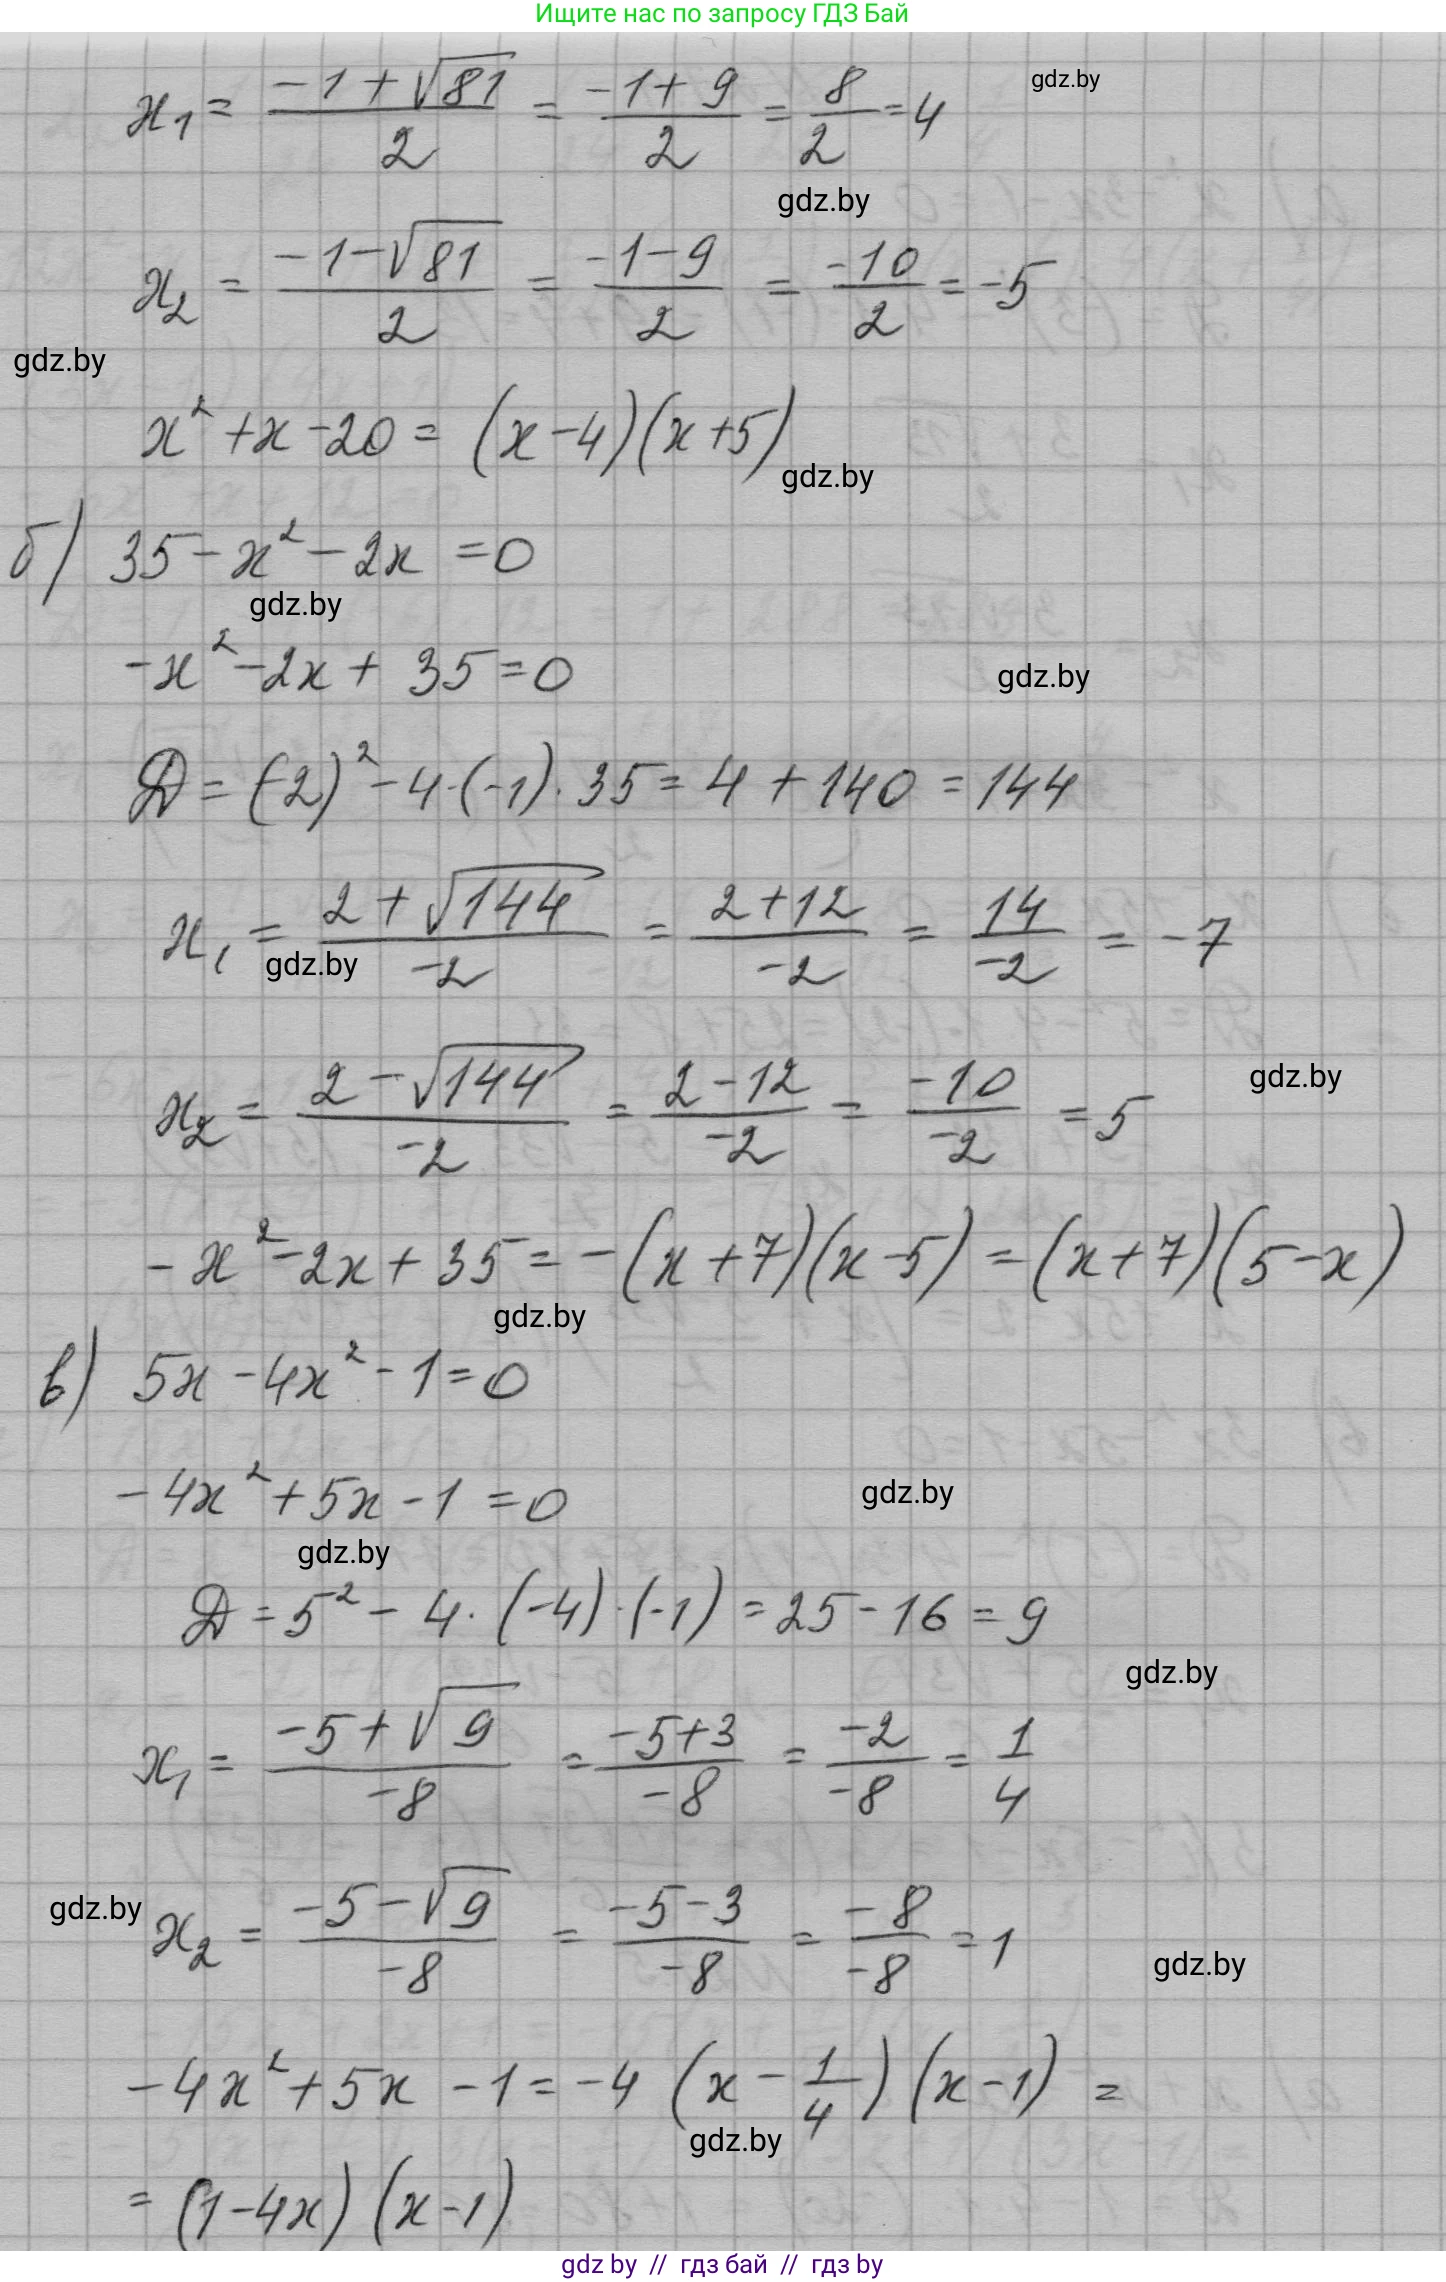 Ищите нас по запросу ГДЗ Бай
x₁ = (-1+√81)/2 = (-1+9)/2 = 8/2 = 4
gdz.by
gdz.by
x₂ = (-1-√81)/2 = (-1-9)/2 = -10/2 = -5
gdz.by
x² + x - 20 = (x-4)(x+5)
gdz.by
б) 35 - x² - 2x = 0
gdz.by
-x² - 2x + 35 = 0
gdz.by
D = (-2)² - 4·(-1)·35 = 4 + 140 = 144
x₁ = (2+√144)/-2 = (2+12)/-2 = 14/-2 = -7
gdz.by
x₂ = (2-√144)/-2 = (2-12)/-2 = -10/-2 = 5
gdz.by
-x² - 2x + 35 = -(x+7)(x-5) = (x+7)(5-x)
gdz.by
в) 5x - 4x² - 1 = 0
-4x² + 5x - 1 = 0
gdz.by
gdz.by
D = 5² - 4·(-4)·(-1) = 25 - 16 = 9
gdz.by
x₁ = (-5+√9)/-8 = (-5+3)/-8 = -2/-8 = 1/4
gdz.by
x₂ = (-5-√9)/-8 = (-5-3)/-8 = -8/-8 = 1
gdz.by
-4x² + 5x - 1 = -4(x - 1/4)(x-1) =
gdz.by
= (1-4x)(x-1)
gdz by // гдз бай // гдз by